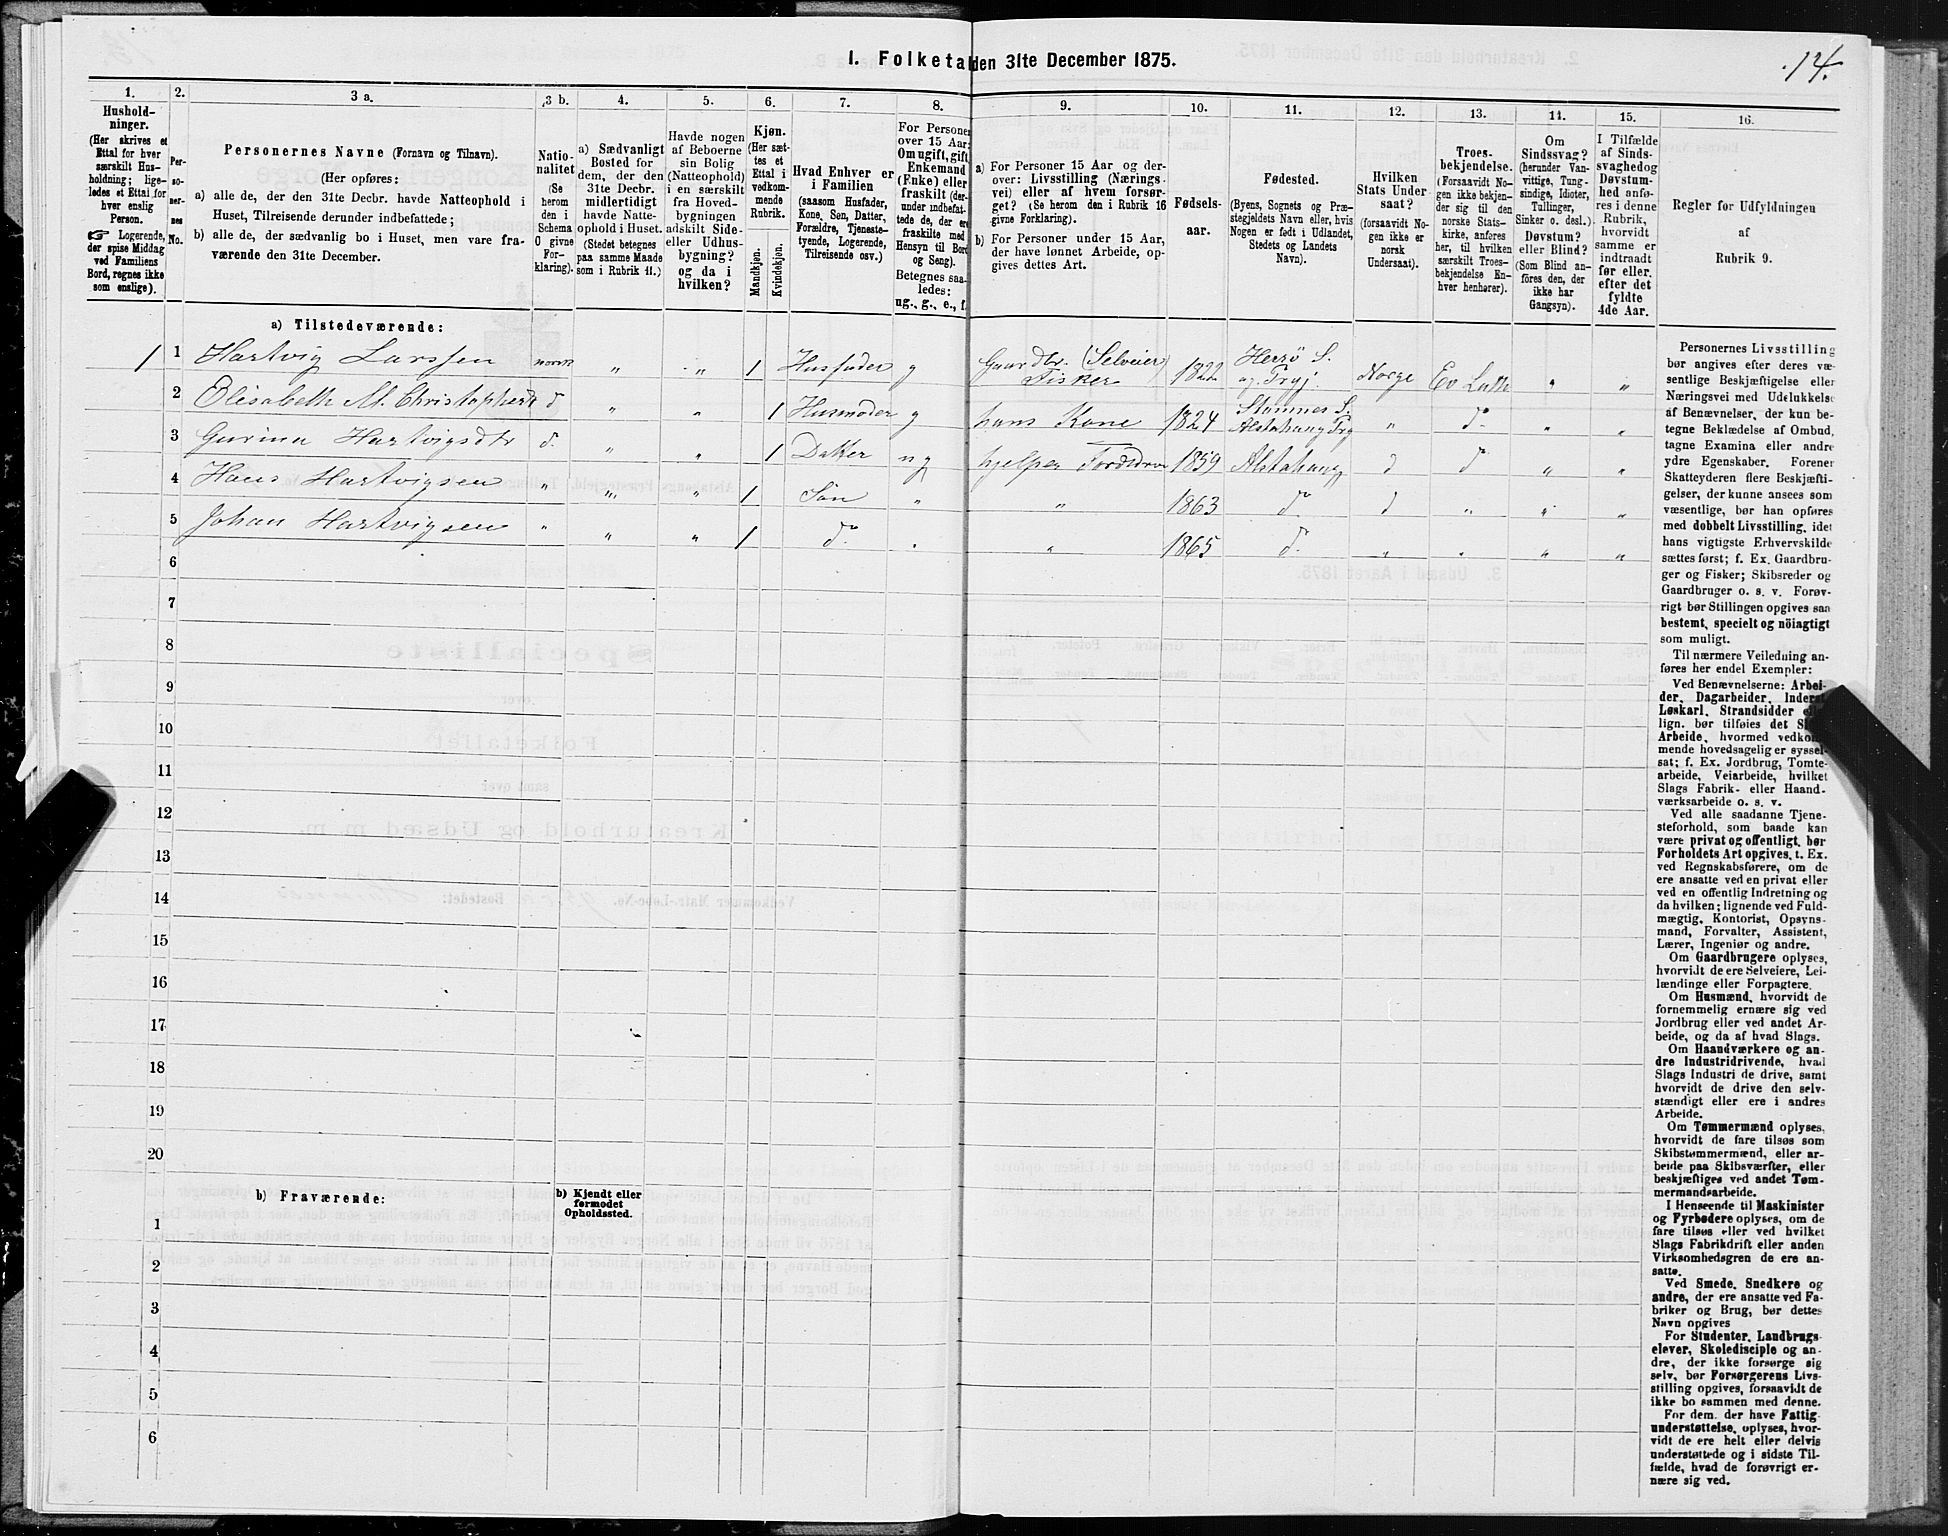 14.
I. Folketal den 31te December 1875.
1.
Hushold-
ninger.
(Her skrives et
Ettal for hver
særskilt Hus-
holdning; lige-
ledes et Ettal for
hver enslig
Person.
☞ Logerende,
der spise Middag
ved Familiens
Bord, regnes ikke
som enslige).
2.
Per-
so-
ner-
nes
No.
3 a.
Personernes Navne (Fornavn og Tilnavn).
(Her opføres:
a) alle de, der den 31te Decbr. havde Natteophold i
Huset, Tilreisende derunder indbefattede;
b) alle de, der sædvanlig bo i Huset, men vare fra-
værende den 31te December.
3 b.
Natio-
nalitet
(Se
herom
den i
Schema
O givne
For-
klaring).
4.
a) Sædvanligt
Bosted for
dem, der den
31te Decbr.
midlertidigt
havde Natte-
ophold i Huset.
(Stedet betegnes
paa samme Maade
som i Rubrik 11.)
5.
Havde nogen
af Beboerne
sin Bolig
(Natteophold)
i en særskilt
fra Hoved-
bygningen
adskilt Side-
eller Udhus-
bygning?
og da i
hvilken?
6.
Kjøn.
(Her sæt-
tes et
Ettal i
vedkom-
mende
Rubrik.
Mandkjøn.
Kvindekjøn.
7.
Hvad Enhver er
i Familien
(saasom Husfader,
Kone, Søn, Datter,
Forældre, Tjeneste-
tyende, Logerende,
Tilreisende osv.)
8.
For Personer
over 15 Aar:
Om ugift, gift,
Enkemand
(Enke) eller
fraskilt (der-
under indbefat-
tede de, der ere
fraskilte med
Hensyn til Bord
og Seng).
Betegnes saa-
ledes:
ug., g., e., f.
9.
a) For Personer 15 Aar og der-
over: Livsstilling (Nærings-
vei) eller af hvem forsør-
get? (Se herom den i Rubrik 16
givne Forklaring).
b) For Personer under 15 Aar,
der have lønnet Arbeide, op-
gives dettes Art.
10.
Fødsels-
aar.
11.
Fødested.
(Byens, Sognets og Præ-
stegjeldets Navn eller, hvis
Nogen er født i Udlandet,
Stedets og Landets
Navn).
12.
Hvilken
Stats Under-
saat?
(forsaavidt No-
gen ikke er
norsk
Undersaat).
13.
Troes-
bekjendelse.
(Forsaavidt No-
gen ikke bekjen-
der sig til den
norske Stats-
kirke, anføres
her, til hvilken
særskilt Troes-
bekjendelse En-
hver henhører).
14.
Om
Sindssvag?
(herunder Van-
vittige, Tung-
sindige, Idioter,
Tullinger,
Sinker o. desl.)
Døvstum?
eller Blind?
(Som Blind an-
føres den, der
ikke har
Gangsyn).
15.
I Tilfælde
af Sinds-
svaghed og
Døvstum-
hed anfø-
res i denne
Rubrik,
hvorvidt
samme er
indtraadt
før eller
efter det
fyldte
4de Aar.
16.
Regler for Udfyldningen
af
Rubrik 9.
a) Tilstedeværende:
1 1 Hartvig Larssen norsk " " 1 Husfader g Gaardbr. (Selveier) Fisker 1822 Herrö S. og Prgj. Norge Ev Luth " "
2 Elisabeth M. Christophersd d " " 1 Husmoder g hans Kone 1824 Stamnes S. Alstahaug Prg " do " "
3 Gurina Hartvigsdtr d. " " 1 Datter ug hjelper 1859 Alstahaug d do " "
4 Hans Hartvigsen " " " 1 Søn " " 1863 do d " " "
5 Johan Hartvigsen " " " 1 do " " 1865 do " " " "
6
7
8
9
10
11
12
13
14
15
16
17
18
19
20
b) Fraværende:
b) Kjendt eller
formodet
Opholdssted.
1
2
3
4
5
6
Personernes Livsstilling
bør angives efter deres væ-
sentlige Beskjæftigelse eller
Næringsvei med Udelukkelse
af Benævnelser, der kun be-
tegne Beklædelse af Ombud,
tagne Examina eller andre
ydre Egenskaber. Forener
Skatteyderen flere Beskjæfti-
gelser, der kunne ansees som
væsentlige, bør han opføres
med dobbelt Livsstilling, idet
hans vigtigste Erhvervskilde
sættes først; f. Ex. Gaardbru-
ger og Fisker; Skibsreder og
Gaardbruger o. s. v. Forøv-
rigt bør Stillingen opgives saa
bestemt, specielt og nöiagtigt
som muligt.
Til nærmere Veiledning an-
føres her endel Exempler:
Ved Benævnelserne: Arbei-
der, Dagarbeider, Inderst,
Løskarl, Strandsidder
lign. bør tilføies det
Arbeide, hvormed vedkom-
mende hovedsagelig er syssel-
sat; f. Ex. Jordbrug, Tomte-
arbeide, Veiarbeide, hvilket
Slags Fabrik- eller Haand-
værksarbeide o. s. v.
Ved alle saadanne Tjene-
steforhold, som baade kan
være privat og offentligt, bør
Forholdets Art opgives, t. Ex.
ved Regnskabsførere, om de
ere ansatte ved en privat eller
ved en offentlig Indretning og
da hvilken; lignende ved Fuld-
mægtig, Kontorist, Opsyns-
mand, Forvalter, Assistent,
Lærer, Ingeniør og andre.
Om Gaardbrugere oplyses,
hvorvidt de ere Selveiere, Lei-
lændinge eller Forpagtere.
Om Husmænd, hvorvidt de
fornemmelig ernære sig ved
Jordbrug eller ved andet Ar-
beide, og da af hvad Slags.
Om Haandværkere og an-
dre Industridrivende, hvad
Slags Industri de drive, samt
hvorvidt de drive den selv-
stændigt eller ere i andres
Arbeide.
Om Tømmermænd oplyses,
hvorvidt de fare tilsøs som
Skibstømmermænd, eller ar-
beide paa Skibsværfter, eller
beskjæftiges ved andet Tøm-
mermandsarbeide.
I Henseende til Maskinister
og Fyrbødere oplyses, om de
fare tilsøs eller ved hvilket
Slags Fabrikdrift eller anden
Virksomhedsgren de ere an-
satte.
Ved Smede, Snedkere og
andre, der ere ansatte ved Fa-
briker og Brug, bør dettes
Navn opgives
For Studenter, Landbrugs-
elever, Skoledisciple og an-
dre, der ikke forsørge sig
selv, bør Forsørgerens Livs-
stilling opgives, forsaavidt de
ikke bo sammen med denne.
For dem, der have Fattig-
understøttelse, oplyses, hvor-
vidt de ere helt eller delvis
understøttede og i sidste Til-
fælde, hvad de forøvrigt er-
nære sig ved.